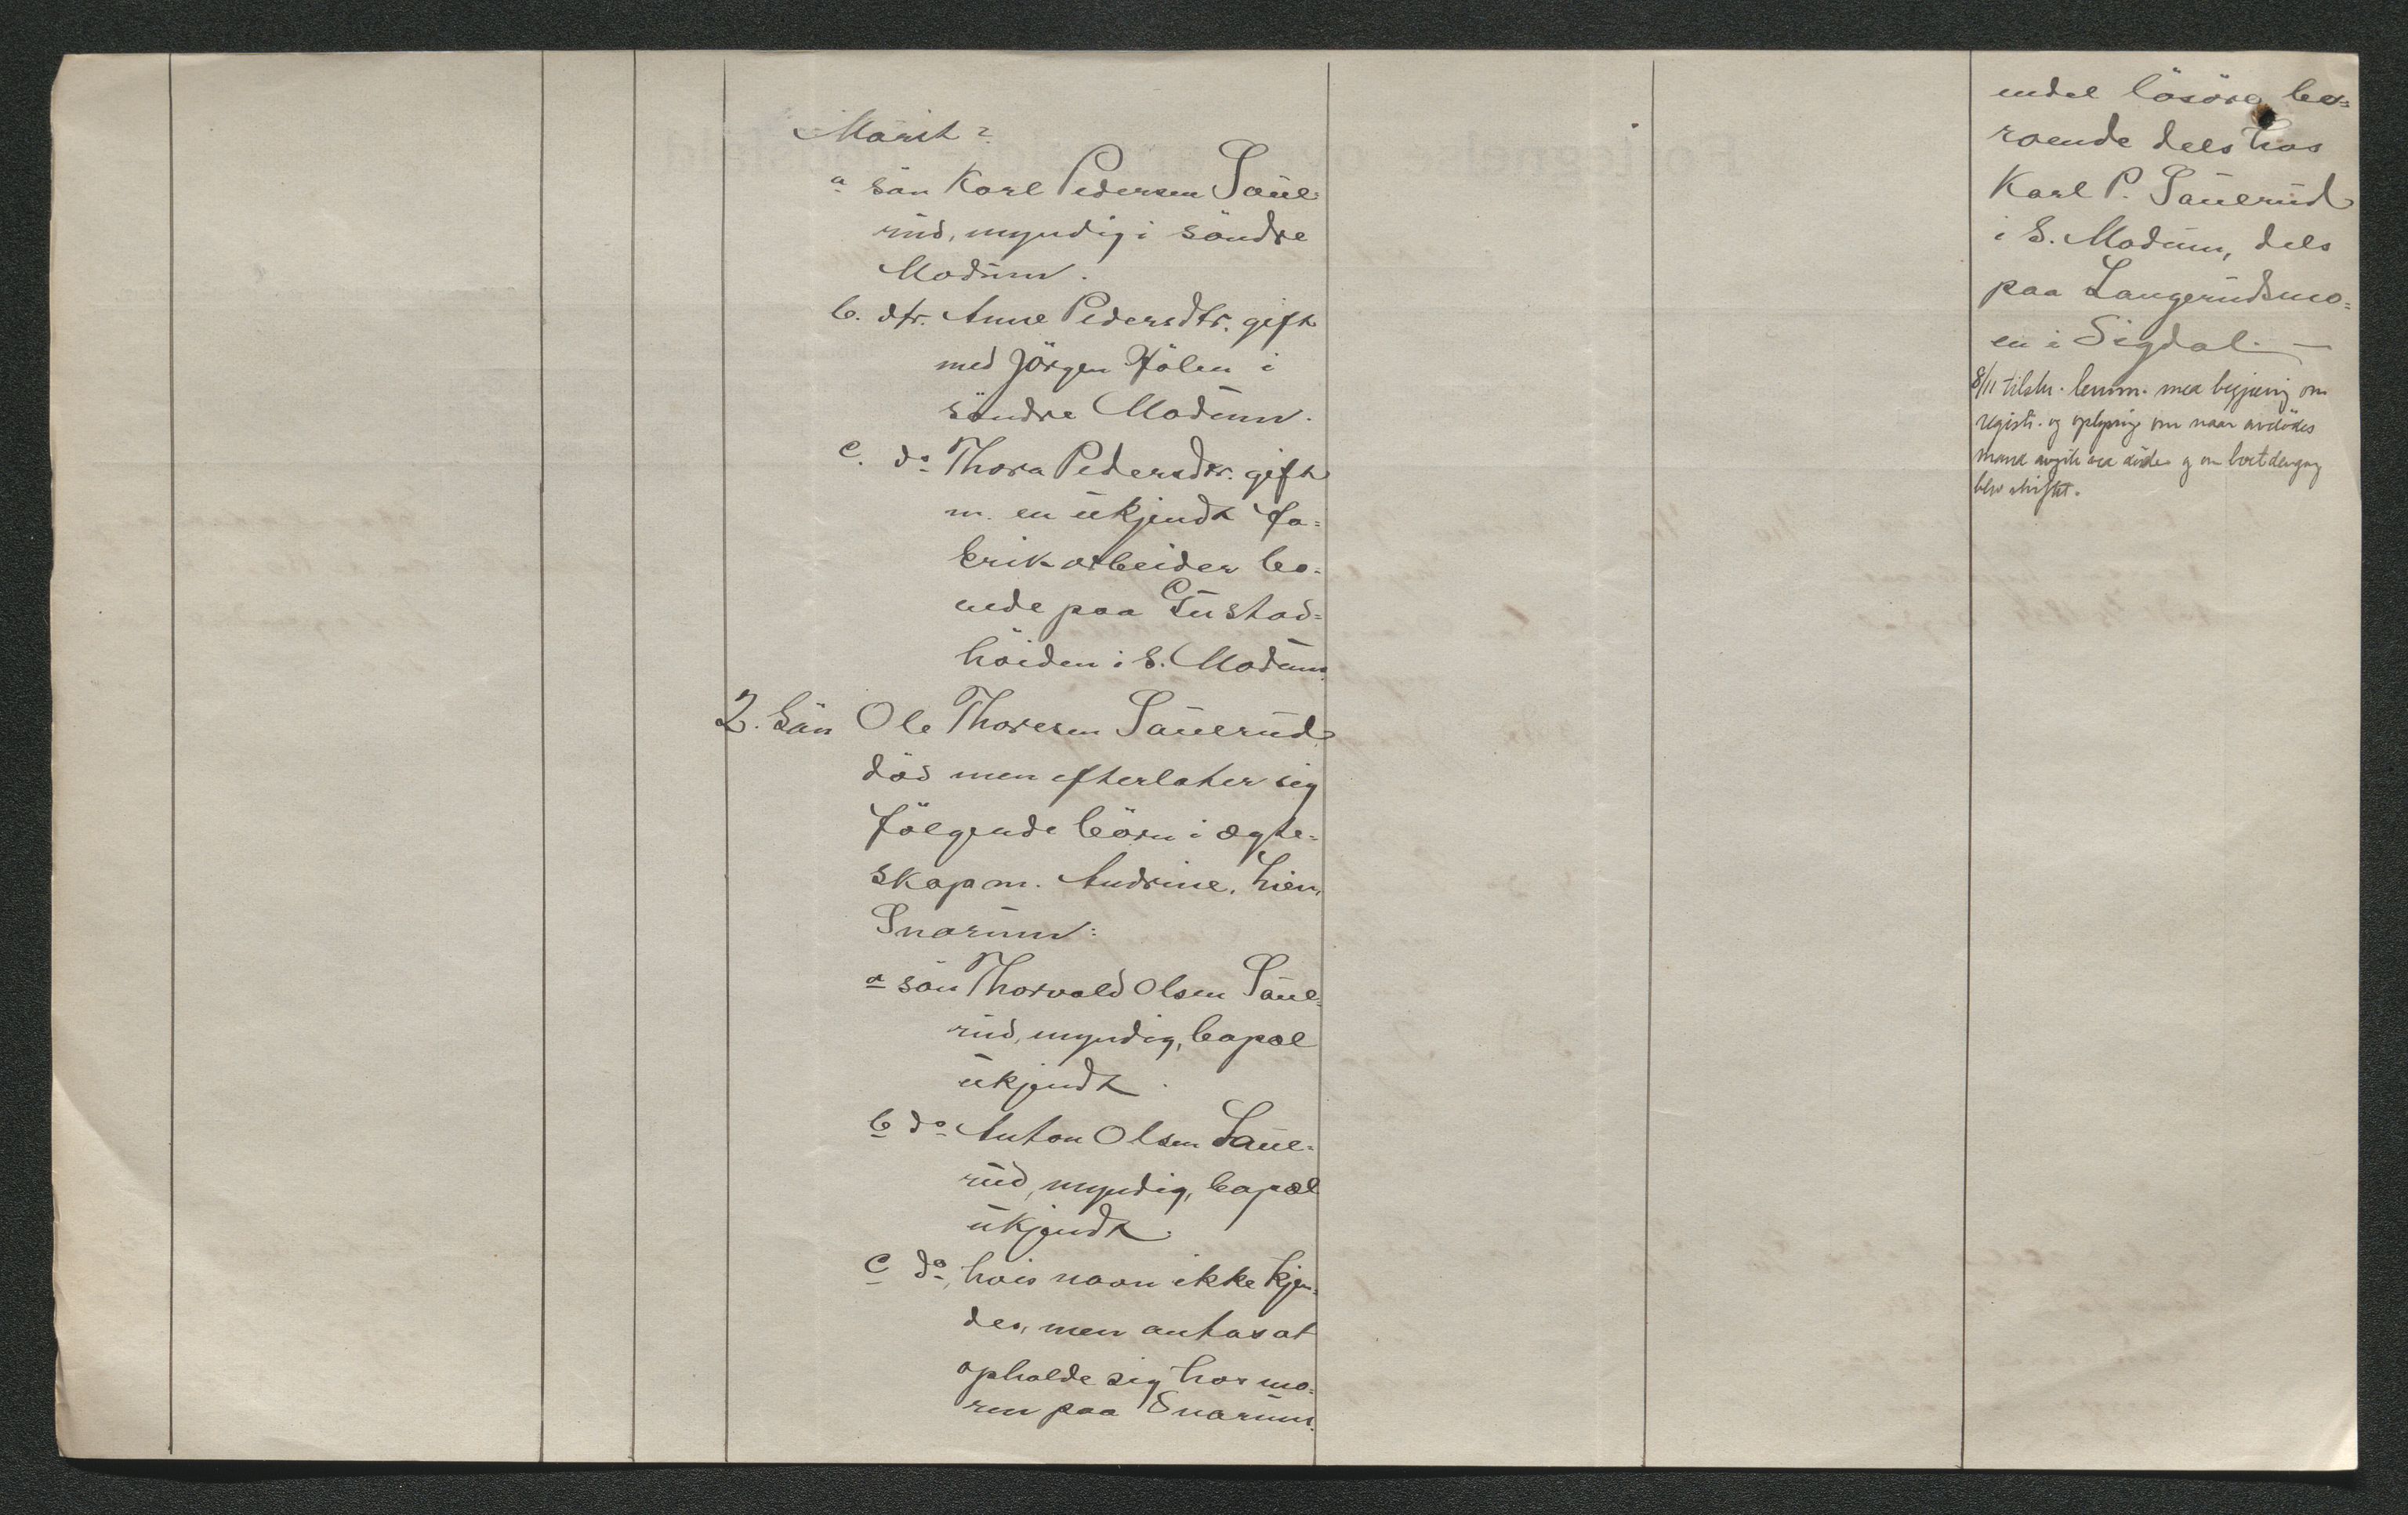 Marit?
a sön Karl Pedersen Saue-
rud, myndig i söndre
Modum.
b. dtr. Anne Pedersdtr. gift
med Jörgen Hölen i
söndre Modum.
c. do Thora Pedersdtr. gift
m. en ukjendt fa=
brikarbeider bo=
ende paa Gustad=
höiden i S. Modum.
2. Sön Ole Thoresen Sauerud
död men efterlater sig
fölgende börn i ægte-
skap m. Andrine, hien,
Snarum:
a sön Thorvald Olsen Saue-
rud, myndig, bopæl
ukjendt.
b do Anton Olsen Saue-
rud, myndig, bopæl
ukjendt.
c do, hvis navn ikke kjen-
des, men antas at
opholde sig hos mo-
ren paa Snarum.
endel lösöre be=
roende dels hos
Karl P. Sauerud
i S. Modum, dels
paa Langerudsmo=
en i Sigdal. —
8/11 tilskr. lensm. med begjæring om
registr. og oplysning om naar avdödes
mand avgik ved döden og om boet dengang
blev skiftet.